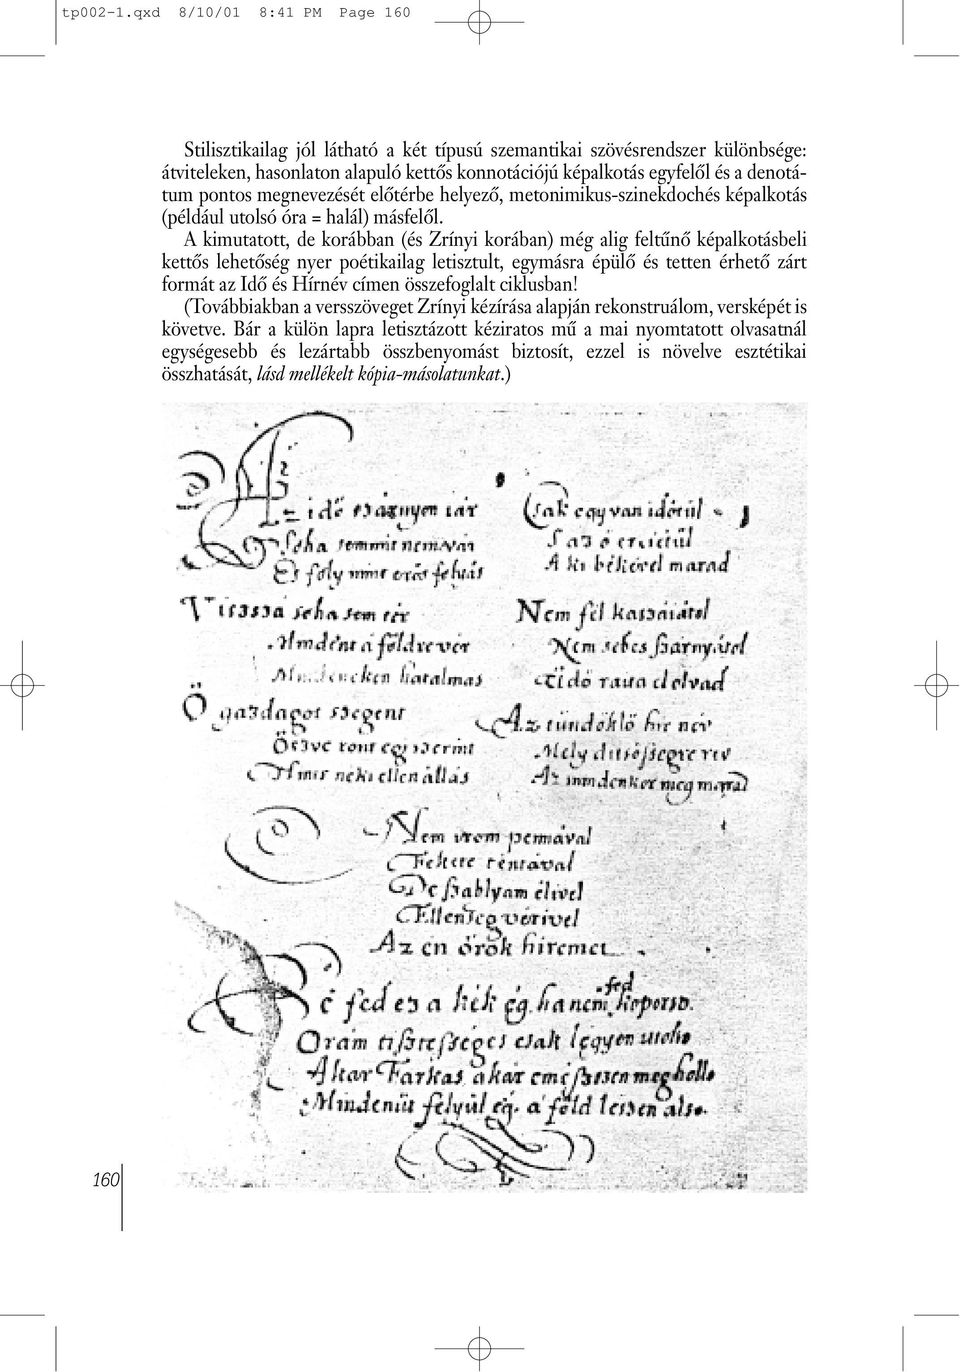 tp002-1.qxd 8/10/01 8:41 PM Page 160
Stilisztikailag jól látható a két típusú szemantikai szövésrendszer különbsége:
átviteleken, hasonlaton alapuló kettős konnotációjú képalkotás egyfelől és a denotá-
tum pontos megnevezését előtérbe helyező, metonimikus-szinekdochés képalkotás
(például utolsó óra = halál) másfelől.
A kimutatott, de korábban (és Zrínyi korában) még alig feltűnő képalkotásbeli
kettős lehetőség nyer poétikailag letisztult, egymásra épülő és tetten érhető zárt
formát az Idő és Hírnév címen összefoglalt ciklusban!
(Továbbiakban a versszöveget Zrínyi kézírása alapján rekonstruálom, versképét is
követve. Bár a külön lapra letisztázott kéziratos mű a mai nyomtatott olvasatnál
egységesebb és lezártabb összbenyomást biztosít, ezzel is növelve esztétikai
összhatását, lásd mellékelt kópia-másolatunkat.)
Az idő szárnyon iár
Soha semmit nem vár
És foly mint erős
Viszszá soha sem tér
Mindent á földre vér
hatalmas
Ö gazdagot szegent
Öszve ront egy szerint
Nintsen neki ellen állás
Csak egy van időtül
S az ő ereiétül
A ki békével marad
Nem fél kaszáiátol
Nem sebes szárnyátol
idő raita el olvad
Az tündöklő hir név
Mely ditsősségre rév
Az mindenkor meg marad
Nem irom pennával
Fekete téntával
De szablyam élivel
Ellenség vérivel
Az en örök hiremet
Bé fed ez a kék ég ha nem fed koporso.
Orám tisztességes csak légyen utolso
Akar Farkas akár emészszen meg hollo
Mindenüt felyül ég. a föld leszen also.
160